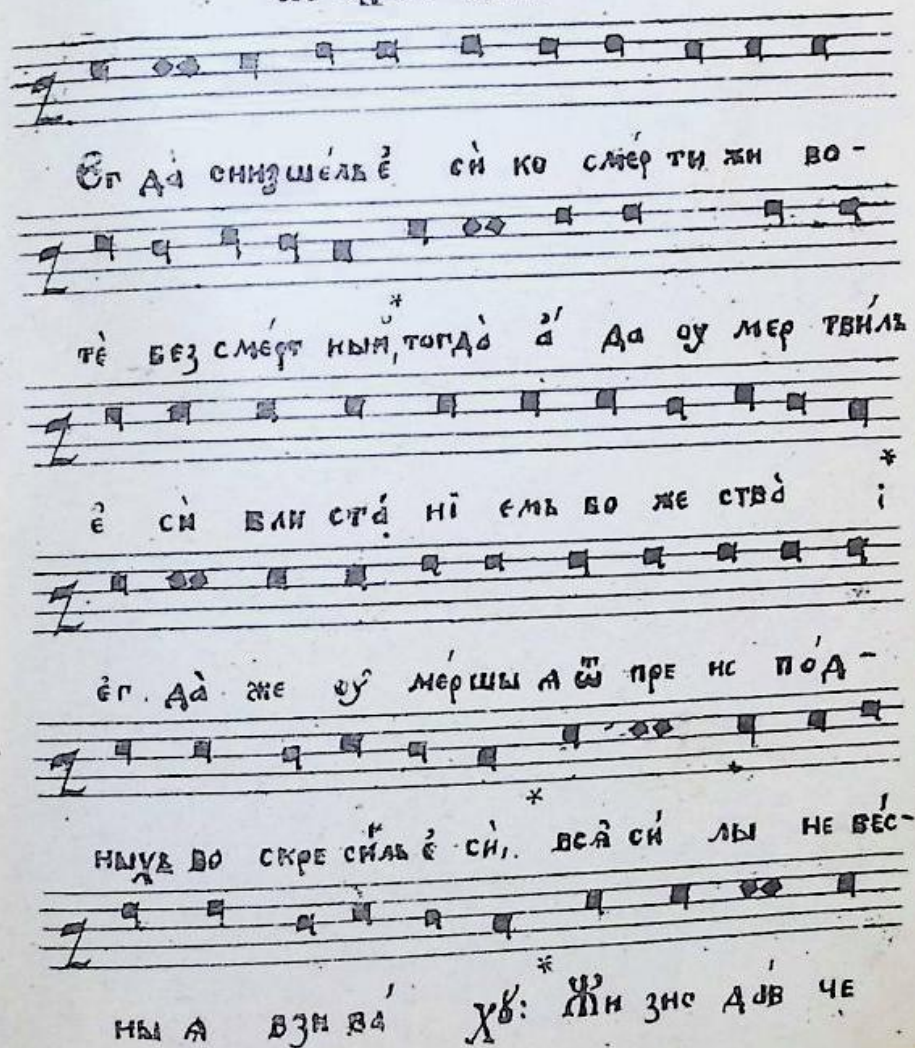 Єг да̀ снизше́лъ є҆ сѝ ко сме́р ти жи во-
тѐ без сме́рт ный,* тогда̀ а҆́ да оу мер тви́лъ
є҆ сѝ бли ста́ нї емъ бо же ства̀ :*
є҆г да̀ же оу҆ ме́р шы ѧ ѿ пре ис по́д-
ныхъ во скре си́лъ є҆ сѝ,* всѧ̑ си́ лы не бе́с-
ны ѧ взы ва́ хꙋ:* Жи зно да́в че